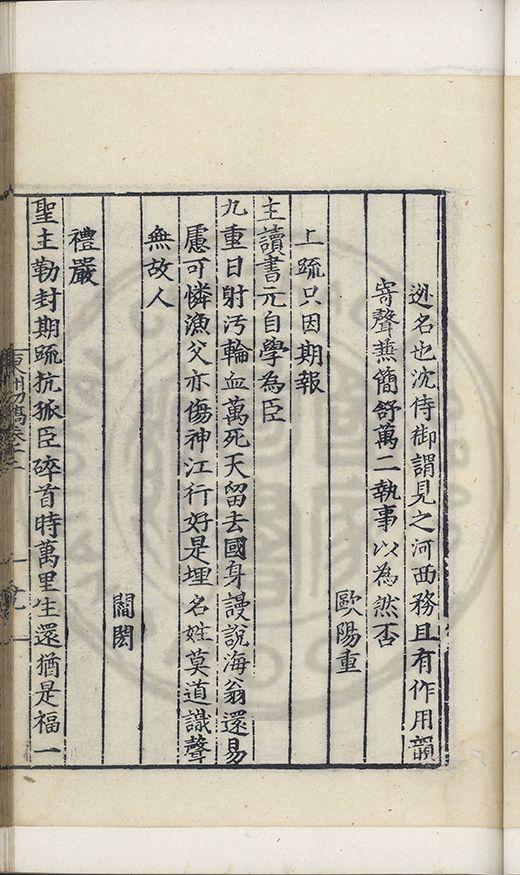 迯名也沈侍御謂見之河西務且有作用韻
寄聲蕪簡舒萬二執事以為然否
歐陽重
上疏只因期報
主讀書元自學為臣
九重日射汚輪血萬死天留去國身謾說海翁還易
慮可憐漁父亦傷神江行好是埋名姓莫道識聲
無故人
閻閎
禮嚴
聖主勒封期疏抗孤臣碎首時萬里生還猶是福一
東洲初稿卷十三
十九